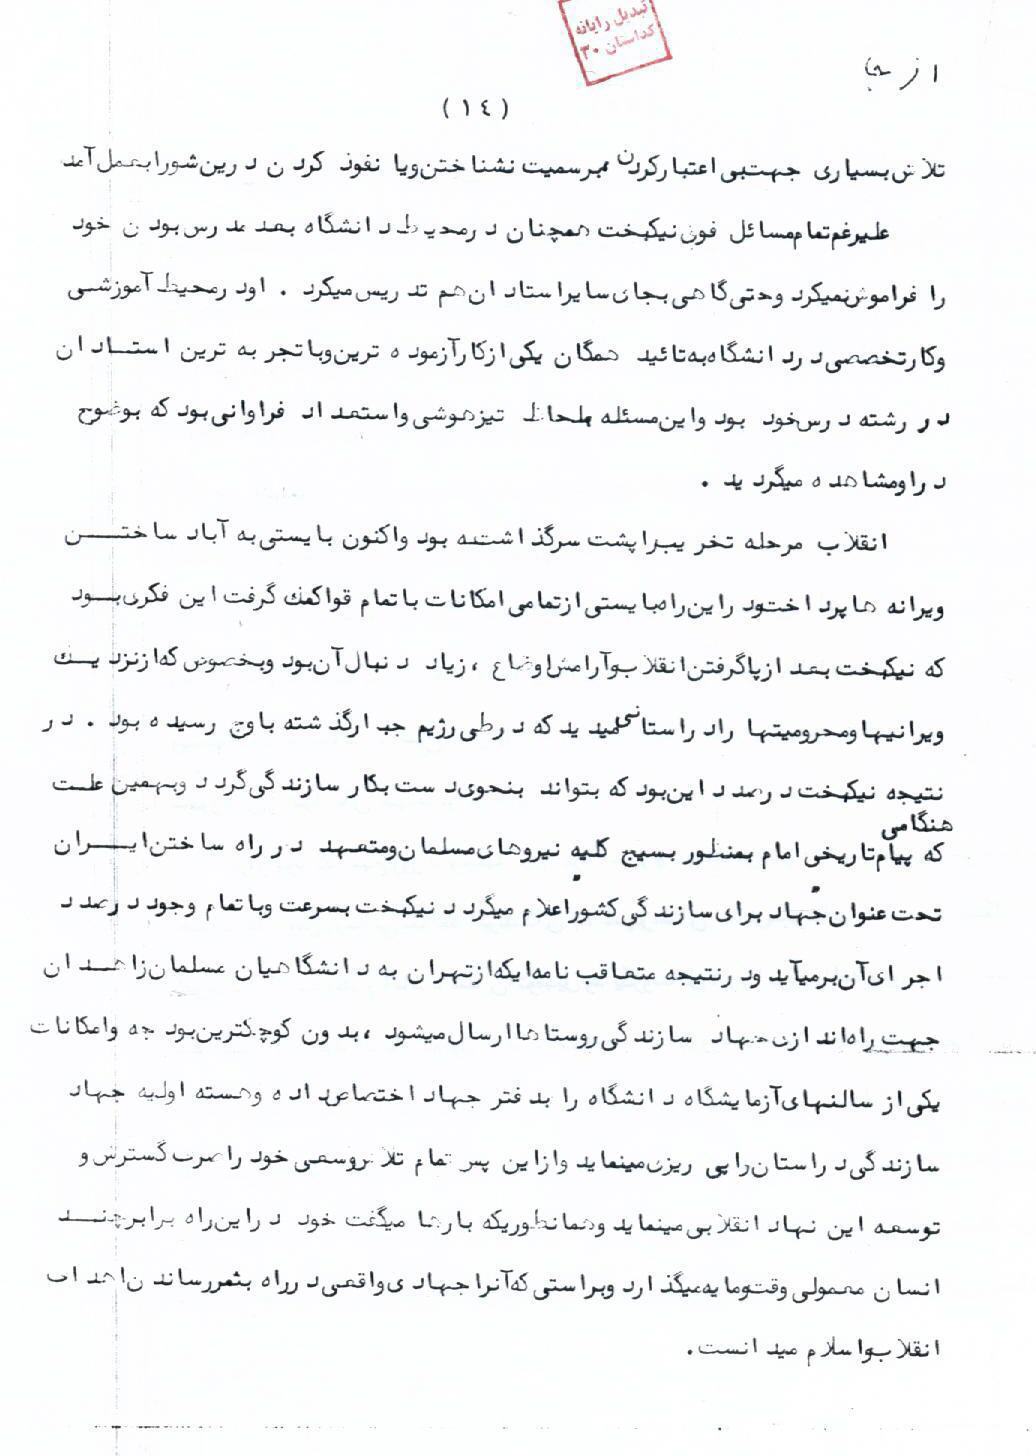 تبدیل رایانه
۳۰
از
(١٤)
تلاش بسیاری جهت بی اعتبار کردن برسمیت نشناختن ویا نفوذ کردن درین شورا بعمل آمد
علیرغم تمام مسائل فوق نیکبخت همچنان در محیط دانشگاه بعد مدرس بودن خود
را فراموش نمیکرد وحتی گاهی بجای سایر استادان هم تدریس میکرد . او در محیط آموزشی
وکار تخصصی در دانشگاه به تائید همگان یکی از کارآزموده ترین وبا تجربه ترین استادان
در رشته درس خود بود واین مسئله بلحاظ تیزهوشی واستعداد فراوانی بود که بوضوح
در او مشاهده میگردید .
انقلاب مرحله تخریب را پشت سر گذاشته بود واکنون بایستی به آباد ساختن
ویرانه ها پرداخت و در این راه بایستی از تمامی امکانات با تمام قوا کمک گرفت این فکری بود
که نیکبخت بعد از پا گرفتن انقلاب و آرامش اوضاع ، زیاد دنبال آن بود وبخصوص که از نزدیک
ویرانیها ومحرومیتها را در استان میدید که در طی رژیم جبار گذشته باوج رسیده بود . در
نتیجه نیکبخت درصدد این بود که بتواند بنحوی دست بکار سازندگی گردد وبهمین علت
هنگامی
که پیام تاریخی امام بمنظور بسیج کلیه نیروهای مسلمان ومتعهد در راه ساختن ایران
تحت عنوان جهاد برای سازندگی کشور اعلام میگردد نیکبخت بسرعت وبا تمام وجود درصدد
اجرای آن برمیآید ودر نتیجه متعاقب نامه ایکه از تهران به دانشگاهیان مسلمان زاهدان
جهت راه اندازی جهاد سازندگی روستاها ارسال میشود ، بدون کوچکترین بودجه وامکانات
یکی از سالنهای آزمایشگاه دانشگاه را بدفتر جهاد اختصاص داده وهسته اولیه جهاد
سازندگی در استان را پی ریزی مینماید واز این پس تمام تلاش وسعی خود را صرف گسترش و
توسعه این نهاد انقلابی مینماید وهمانطوریکه بارها میگفت خود در این راه برابر چند
انسان معمولی وقت ومایه میگذارد وبراستی که آنرا جهادی واقعی در راه بثمر رساندن اهداف
انقلاب واسلام میدانست.